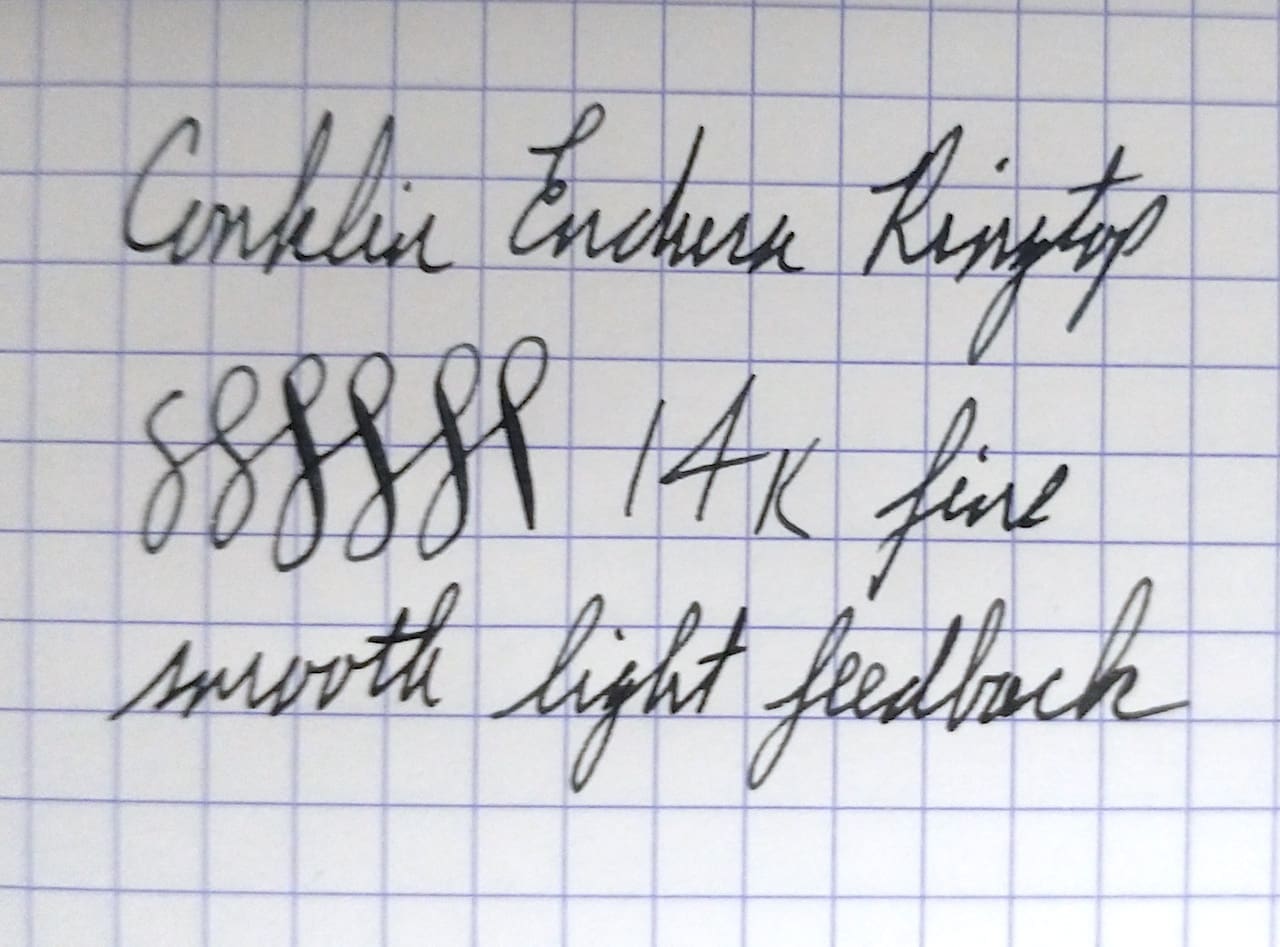 Conklin Endura Ringtop
14K fine
smooth light feedback